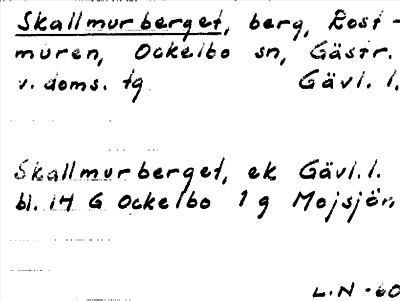 Skallmurberget, berg, Rost-
muren, Ockelbo sn, Gästr.
v. doms. tg Gävl. l.
Skallmurberget, ek Gävl. l.
bl. 14 G Ockelbo 1 g Mojsjön
L.N -60